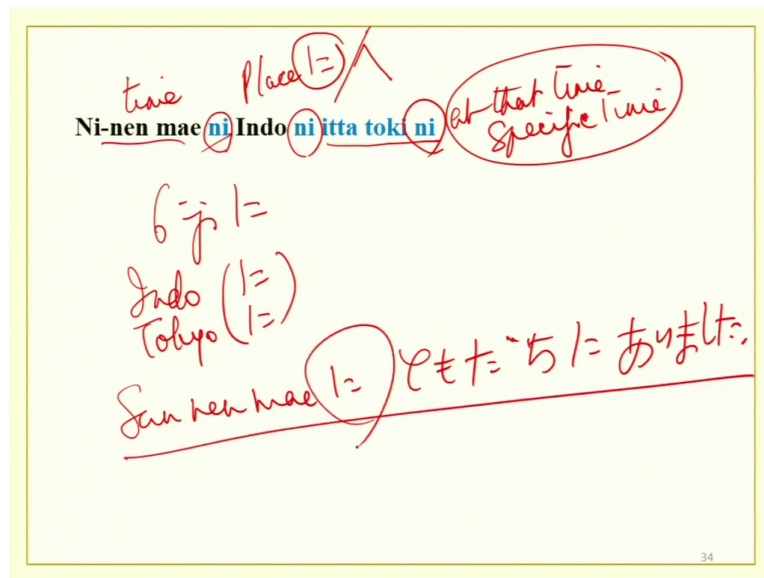 time Place に/へ
Ni-nen mae ni Indo ni itta toki ni at that time specific time
6 ji に
Indo (に)
Tokyo (に)
San nen mae に ともだちに あいました
34